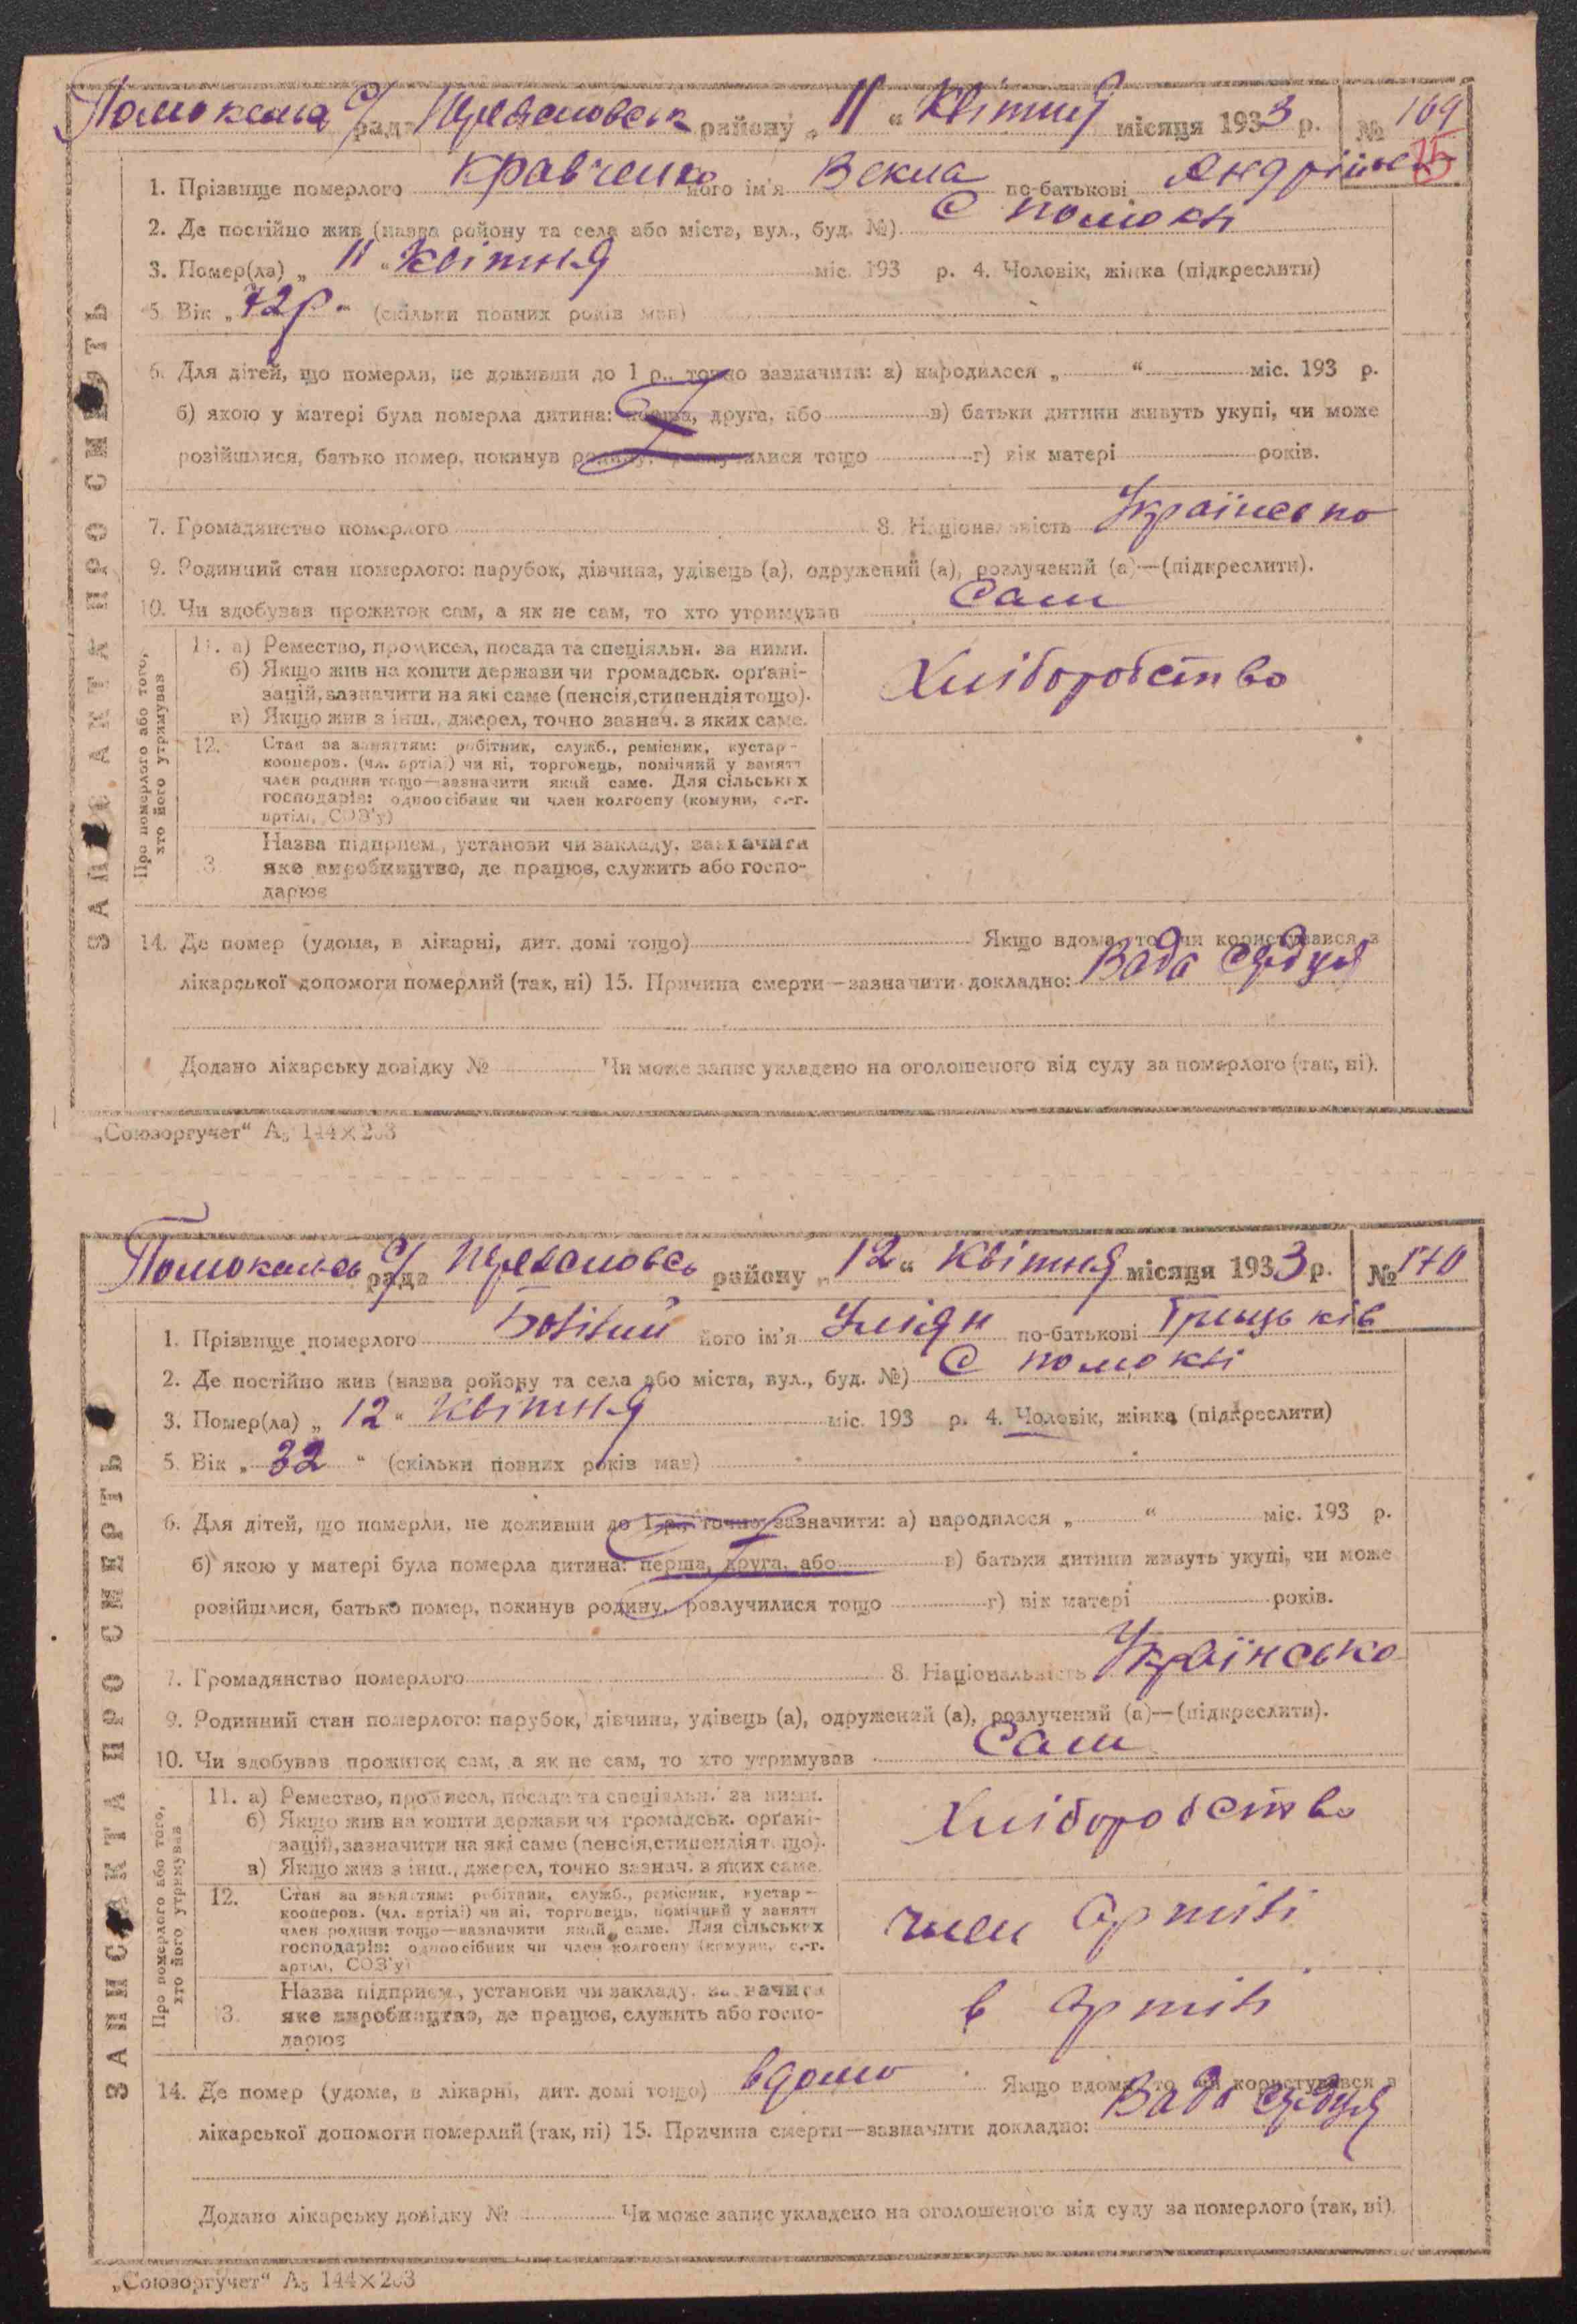 Помокельа с/ рада Переяловськ району „ 11 “ Квітня місяця 1933 р. № 169
75
1. Прізвище померлого Кравченко його ім'я Векла по-батькові Андріівна
2. Де постійно жив (назва району та села або міста, вул., буд. №) С Помокні
3. Помер(ла) „ 11 “ Квітня міс. 193 р. 4. Чоловік, жінка (підкреслити)
5. Вік „ 72р. (скільки повних років мав)
6. Для дітей, що померли, не доживши до 1 р., точно зазначити: а) народилося „ “ міс. 193 р.
б) якою у матері була померла дитина: перша, друга, або в) батьки дитини живуть укупі, чи може
розійшлися, батько помер, покинув родину, розлучилися тощо г) вік матері років.
7. Громадянство померлого 8. Національність Українсько
9. Родинний стан померлого: парубок, дівчина, удівець (а), одружений (а), розлучений (а)—(підкреслити).
10. Чи здобував прожиток сам, а як не сам, то хто утримував Сам
ЗАПИС АКТА ПРО СМЕРТЬ
Про померлого або того, хто його утримував
11. а) Ремество, промисел, посада та спеціяльн. за ними.
б) Якщо жив на кошти держави чи громадськ. органі-
зацій, зазначити на які саме (пенсія, стипендія тощо).
в) Якщо жив з інш., джерел, точно зазнач. з яких саме.
Хліборобство
12. Стан за заняттям: робітник, служб., ремісник, кустар-
кооперов. (чл. артілі) чи ні, торговець, помічний у занятт
член родини тощо—зазначити який саме. Для сільських
господарів: одноосібник чи член колгоспу (комуни, с.-г.
артілі, СОЗ'у)
13. Назва підприєм., установи чи закладу, зазначити
яке виробництво, де працює, служить або госпо-
дарює
14. Де помер (удома, в лікарні, дит. домі тощо) Якщо вдома, то чи користувався з
лікарської допомоги померлий (так, ні) 15. Причина смерти—зазначити докладно: Вада сердця
Додано лікарську довідку № Чи може запис укладено на оголошеного від суду за померлого (так, ні).
„Союзоргучет“ А₅ 144×203
с/ рада району „ 12 “ Квітня місяця 1933 р. № 170
1. Прізвище померлого його ім'я по-батькові Грицьків
2. Де постійно жив (назва району та села або міста, вул., буд. №) С Помокні
3. Помер(ла) „ 12 “ Квітня міс. 193 р. 4. Чоловік, жінка (підкреслити)
5. Вік „ 32 “ (скільки повних років мав)
6. Для дітей, що померли, не доживши до 1 р., точно зазначити: а) народилося „ “ міс. 193 р.
б) якою у матері була померла дитина: перша, друга, або в) батьки дитини живуть укупі, чи може
розійшлися, батько помер, покинув родину, розлучилися тощо г) вік матері років.
7. Громадянство померлого 8. Національність Українсько
9. Родинний стан померлого: парубок, дівчина, удівець (а), одружений (а), розлучений (а)—(підкреслити).
10. Чи здобував прожиток сам, а як не сам, то хто утримував Сам
ЗАПИС АКТА ПРО СМЕРТЬ
Про померлого або того, хто його утримував
11. а) Ремество, промисел, посада та спеціяльн. за ними.
б) Якщо жив на кошти держави чи громадськ. органі-
зацій, зазначити на які саме (пенсія, стипендія тощо).
в) Якщо жив з інш., джерел, точно зазнач. з яких саме.
Хліборобство
12. Стан за заняттям: робітник, служб., ремісник, кустар-
кооперов. (чл. артілі) чи ні, торговець, помічний у занятт
член родини тощо—зазначити який саме. Для сільських
господарів: одноосібник чи член колгоспу (комуни, с.-г.
артілі, СОЗ'у)
член Артілі
13. Назва підприєм., установи чи закладу, зазначити
яке виробництво, де працює, служить або госпо-
дарює
в Артілі
14. Де помер (удома, в лікарні, дит. домі тощо) вдома Якщо вдома, то чи користувався з
лікарської допомоги померлий (так, ні) 15. Причина смерти—зазначити докладно: Вада сердця
Додано лікарську довідку № Чи може запис укладено на оголошеного від суду за померлого (так, ні).
„Союзоргучет“ А₅ 144×203